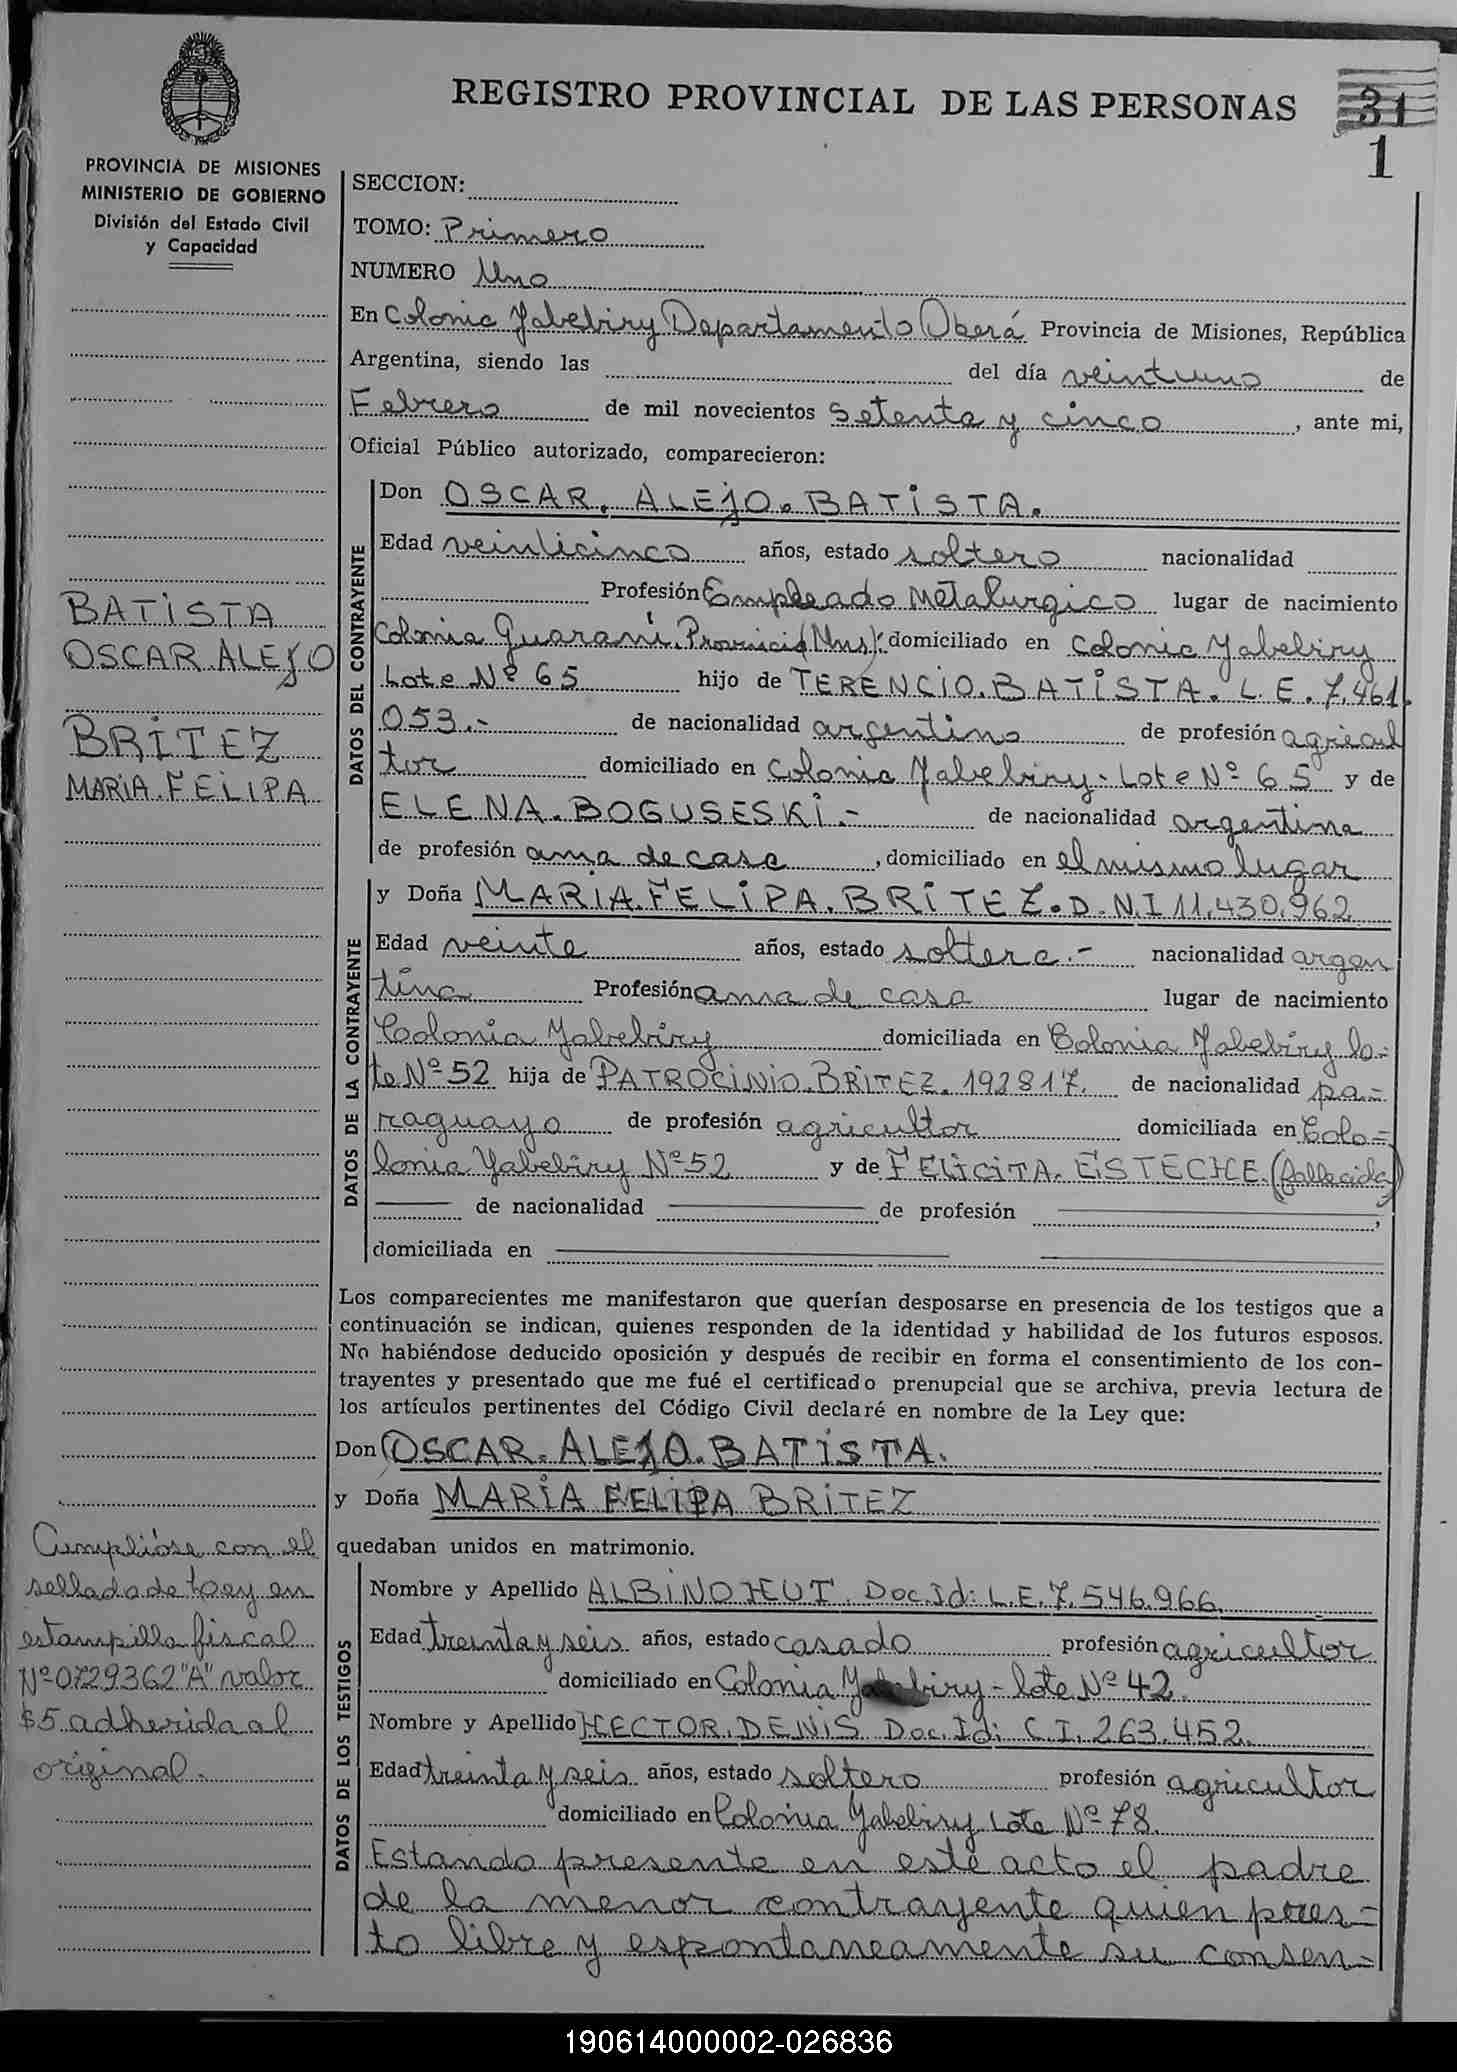 REGISTRO PROVINCIAL DE LAS PERSONAS
31
1
PROVINCIA DE MISIONES
MINISTERIO DE GOBIERNO
División del Estado Civil
y Capacidad
BATISTA
OSCAR ALEJO
BRITEZ
MARIA.FELIPA
Cumplióse con el
sellado de Ley en
estampilla fiscal
Nº 0729362 "A" valor
$5 adherida al
original.
SECCION:
TOMO: Primero
NUMERO Uno
En Colonia Yabebiry Departamento Oberá Provincia de Misiones, República
Argentina, siendo las del día veintiuno de
Febrero de mil novecientos setenta y cinco, ante mi,
Oficial Público autorizado, comparecieron:
DATOS DEL CONTRAYENTE
Don OSCAR. ALEJO. BATISTA.
Edad veinticinco años, estado soltero nacionalidad
Profesión Empleado Metalurgico lugar de nacimiento
Colonia Guaraní Provincia (Mns): domiciliado en Colonia Yabebiry
Lote Nº 65 hijo de TERENCIO. BATISTA. L. E. 7.461.
053.- de nacionalidad argentino de profesión agricul
tor domiciliado en Colonia Yabebiry- Lote Nº 65 y de
ELENA. BOGUSESKI.- de nacionalidad argentina
de profesión ama de casa, domiciliado en el mismo lugar
DATOS DE LA CONTRAYENTE
y Doña MARIA.FELIPA. BRITEZ. D.N.I 11.430.962
Edad veinte años, estado soltera.- nacionalidad argen
tina Profesión ama de casa lugar de nacimiento
Colonia Yabebiry domiciliada en Colonia Yabebiry lo-
te Nº 52 hija de PATROCINIO. BRITEZ. 192817. de nacionalidad pa-
raguayo de profesión agricultor domiciliada en Colo-
lonia Yabebiry Nº 52 y de FELICITA. ESTECHE. (fallecida)
de nacionalidad de profesión ,
domiciliada en
Los comparecientes me manifestaron que querían desposarse en presencia de los testigos que a
continuación se indican, quienes responden de la identidad y habilidad de los futuros esposos.
No habiéndose deducido oposición y después de recibir en forma el consentimiento de los con-
trayentes y presentado que me fué el certificado prenupcial que se archiva, previa lectura de
los artículos pertinentes del Código Civil declaré en nombre de la Ley que:
Don OSCAR. ALEJO. BATISTA.
y Doña MARIA FELIPA BRITEZ
quedaban unidos en matrimonio.
DATOS DE LOS TESTIGOS
Nombre y Apellido ALBINO HUT. Doc.Id: L.E. 7.546.966.
Edad treinta y seis años, estado casado profesión agricultor
domiciliado en Colonia Yabebiry - lote Nº 42.
Nombre y Apellido HECTOR. DENIS. Doc. Id: C.I. 263.452.
Edad treinta y seis años, estado soltero profesión agricultor
domiciliado en Colonia Yabebiry Lote Nº 78.
Estando presente en este acto el padre
de la menor contrayente quien pres-
to libre y espontaneamente su consen-
190614000002-026836